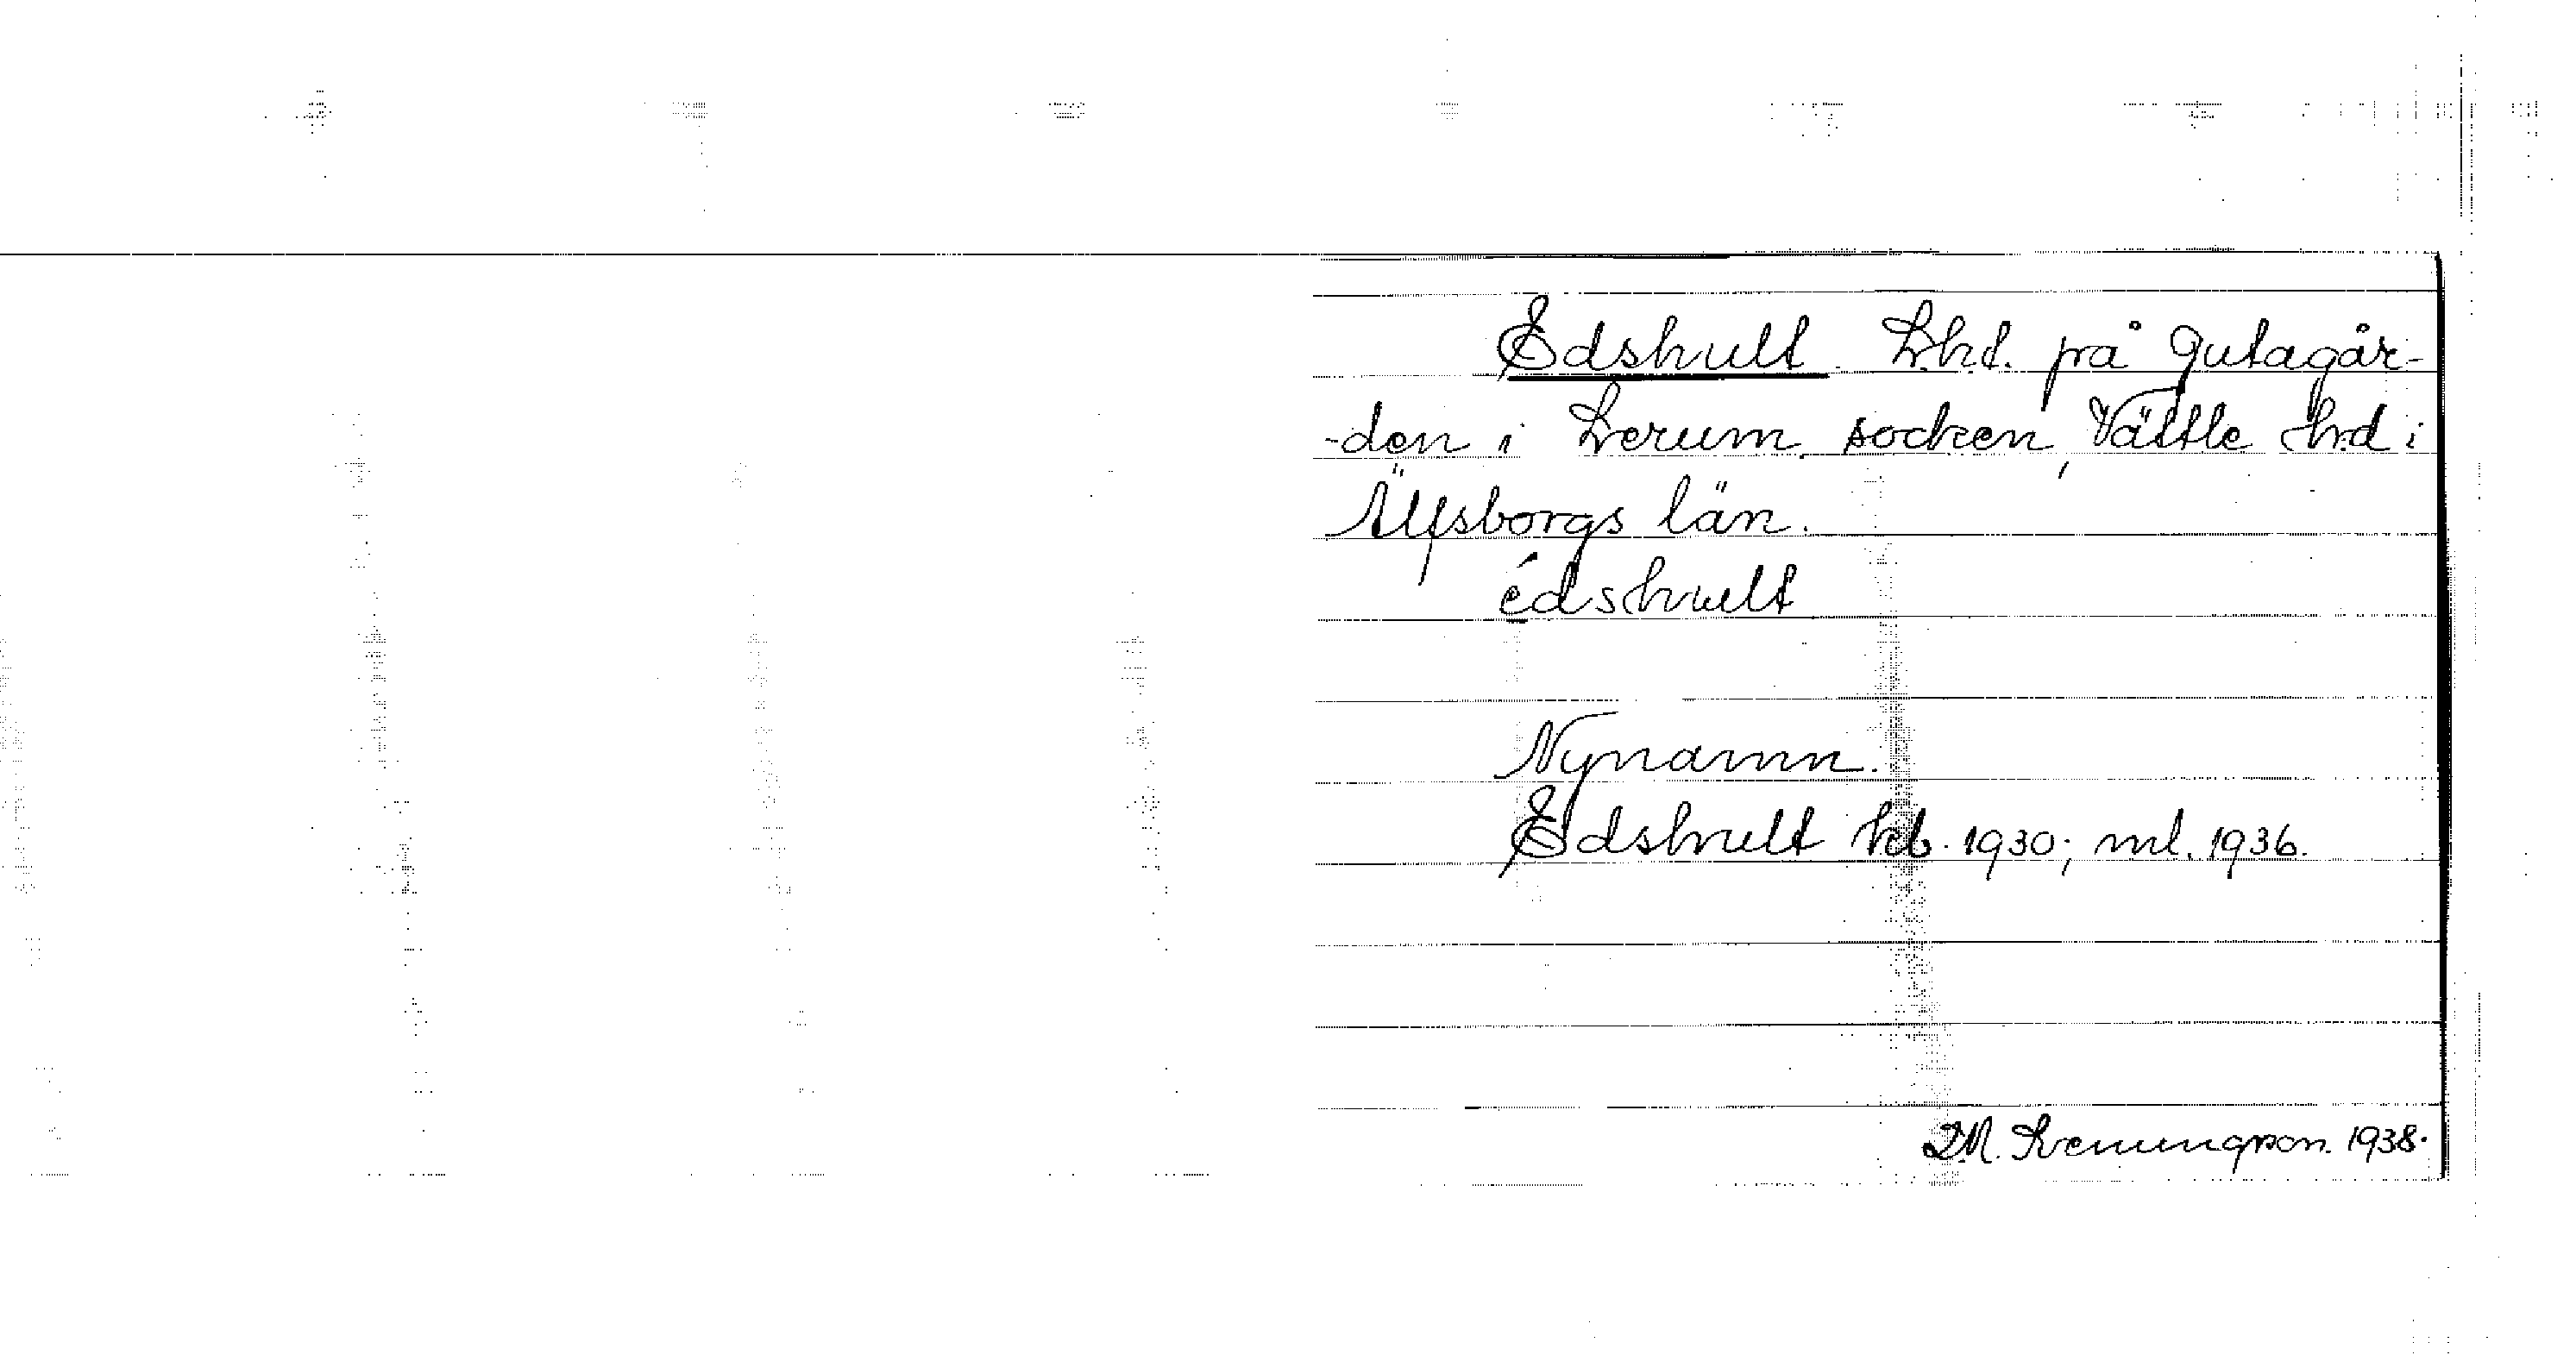 Edshult. Lht. på Gutagår-
-den i Lerum socken, Vättle hd i
Älfsborgs län.
édshult
Nynamn.
Edshult kb. 1930; ml. 1936.
1938.